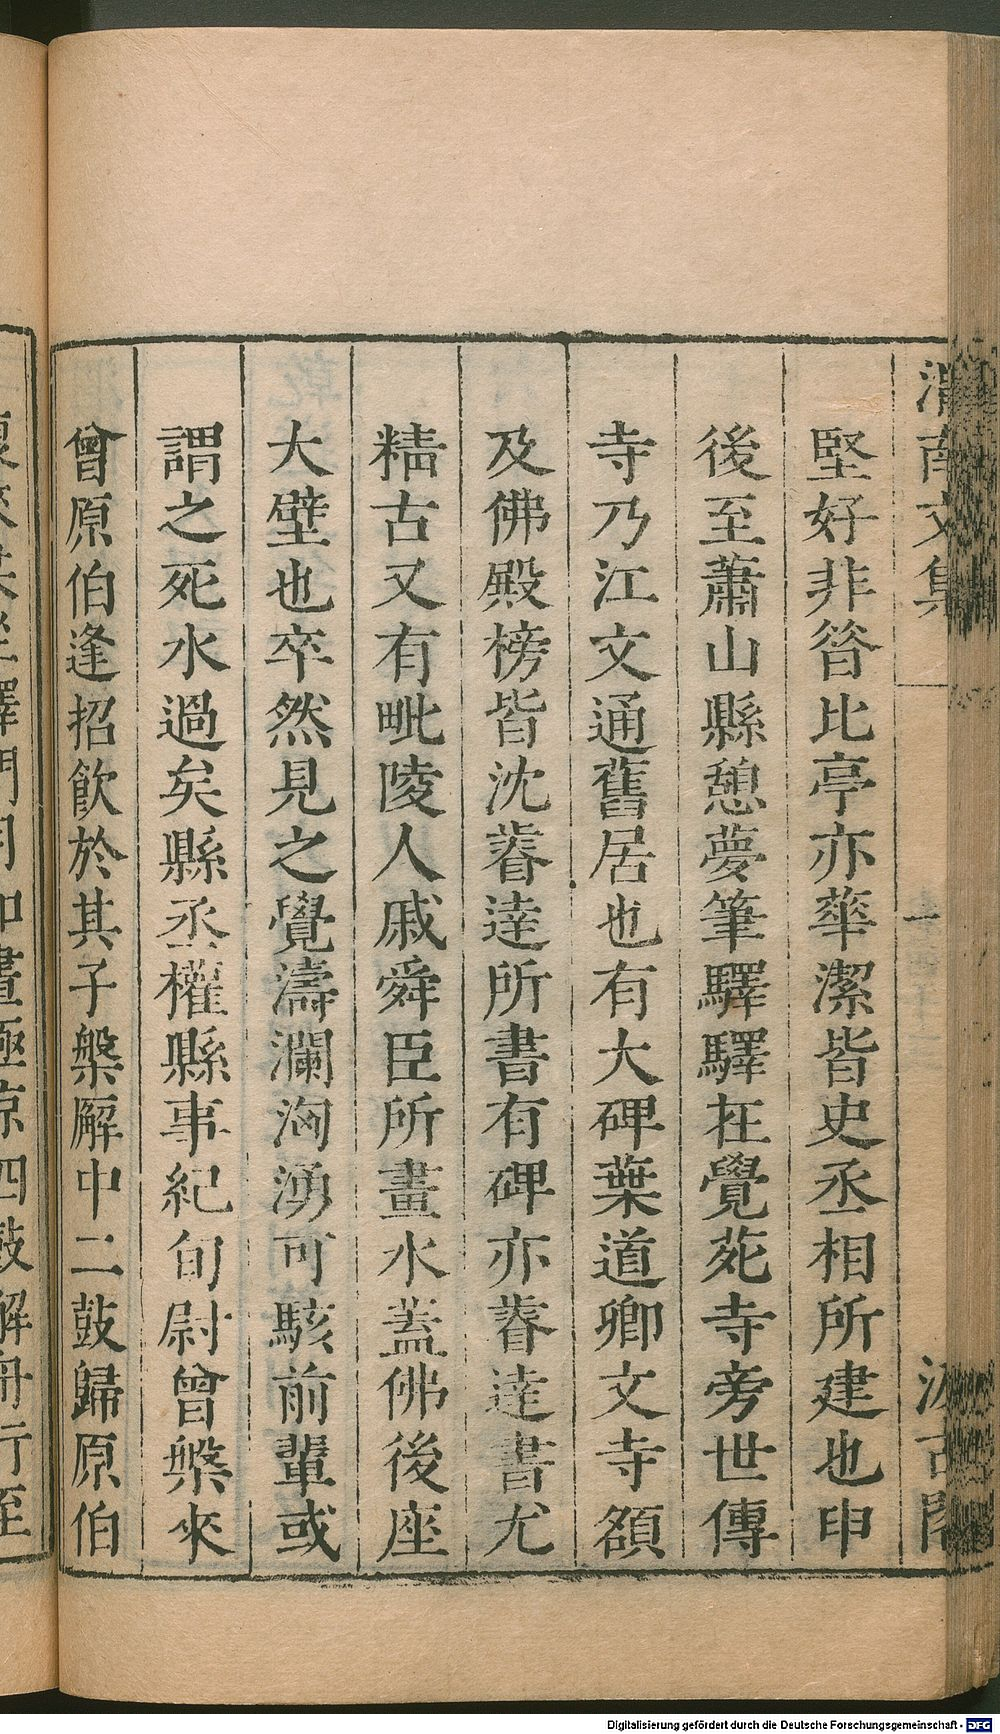 渭南文集
汲古閣
堅好非昝比亭亦華潔皆史丞相所建也申
後至蕭山縣憩夢筆驛驛在覺苑寺旁世傳
寺乃江文通舊居也有大碑葉道卿文寺額
及佛殿榜皆沈䔡逵所書有碑亦䔡逵書尤
精古又有毗陵人戚舜臣所畫水蓋佛後座
大壁也卒然見之覺濤瀾洶湧可駭前輩或
謂之死水過矣縣丞權縣事紀旬尉曾槃來
曾原伯逢招飲於其子槃廨中二鼓歸原伯
Digitalisierung gefördert durch die Deutsche Forschungsgemeinschaft - DFG